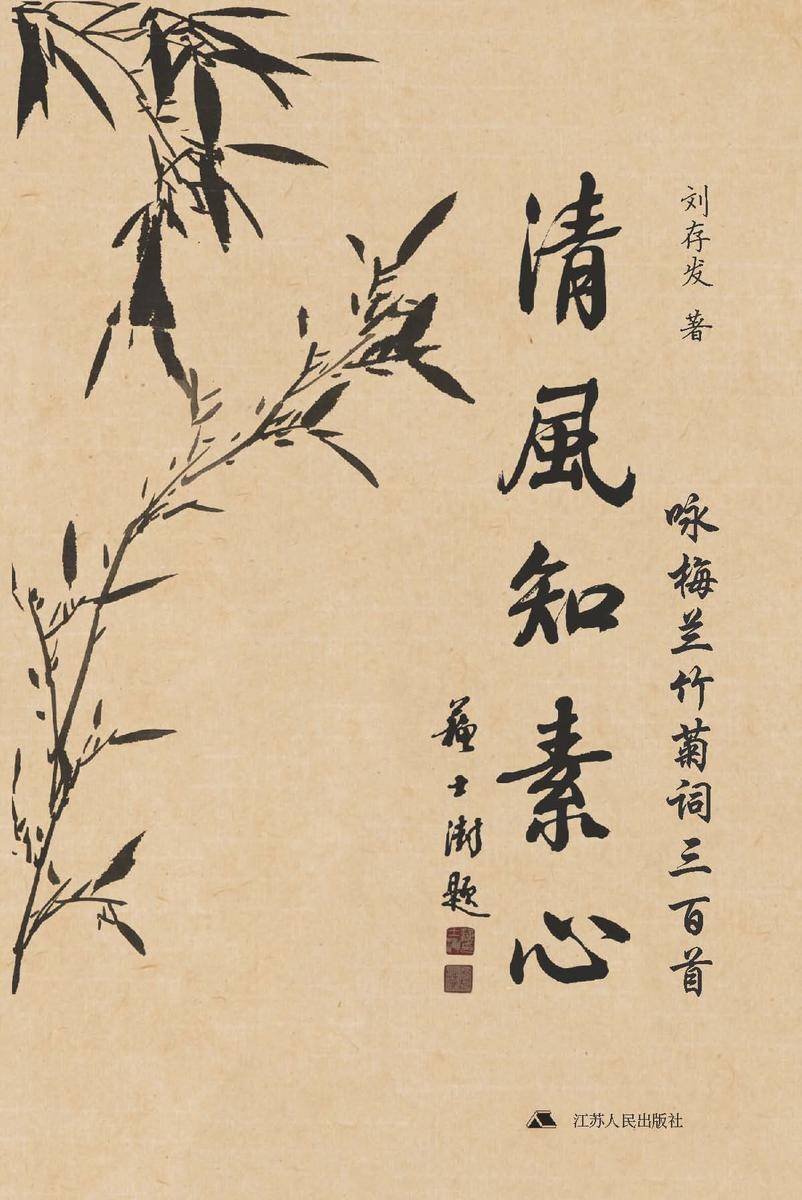 刘存发 著
咏梅兰竹菊词三百首
清風知素心
蘇士澍题
江苏人民出版社